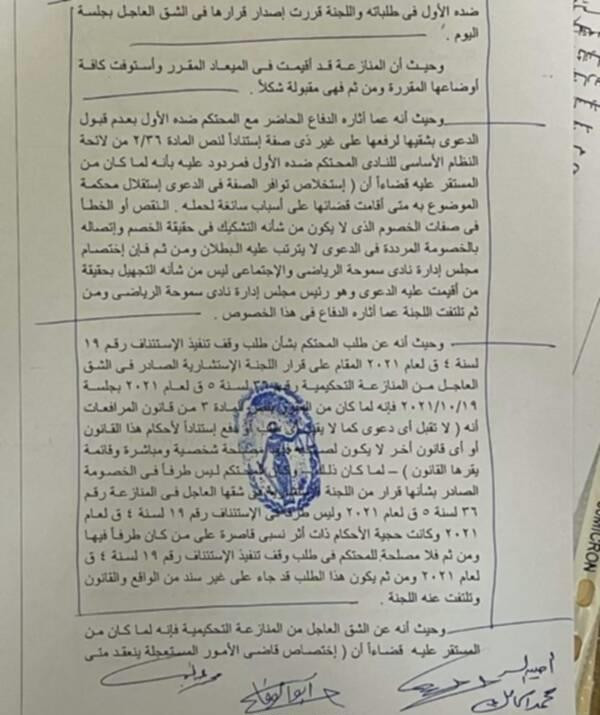 ضده الأول فى طلباته واللجنة قررت إصدار قرارها فى الشق العاجل بجلسة
اليوم .
وحيث أن المنازعة قد أقيمت فى الميعاد المقرر وأستوفت كافة
أوضاعها المقررة ومن ثم فهى مقبولة شكلاً .
وحيث أنه عما أثاره الدفاع الحاضر مع المحتكم ضده الأول بعدم قبول
الدعوى بشقيها لرفعها على غير ذى صفة إستناداً لنص المادة ٢/٣٦ من لائحة
النظام الأساسى للنادى المحتكم ضده الأول فمردود عليه بأنه لما كان من
المستقر عليه قضاءاً أن ( إستخلاص توافر الصفة فى الدعوى إستقلال محكمة
الموضوع به متى أقامت قضائها على أسباب سائغة لحمله . النقص أو الخطأ
فى صفات الخصوم الذى لا يكون من شأنه التشكيك فى حقيقة الخصم وإتصاله
بالخصومة المرددة فى الدعوى لا يترتب عليه البطلان ومن ثم فإن إختصام
مجلس إدارة نادى سموحة الرياضى والإجتماعى ليس من شأنه التجهيل بحقيقة
من أقيمت عليه الدعوى وهو رئيس مجلس إدارة نادى سموحة الرياضى ومن
ثم تلتفت اللجنة عما أثاره الدفاع فى هذا الخصوص .
وحيث أنه عن طلب المحتكم بشأن طلب وقف تنفيذ الإستئناف رقم ١٩
لسنة ٤ ق لعام ٢٠٢١ المقام على قرار اللجنة الإستشارية الصادر فى الشق
العاجل من المنازعة التحكيمية رقم ٣٦ لسنة ٥ ق لعام ٢٠٢١ بجلسة
٢٠٢١/١٠/١٩ فإنه لما كان من المادة ٣ من قانون المرافعات
أنه ( لا تقبل أى دعوى كما لا يقبل أى طلب أو دفع إستناداً لأحكام هذا القانون
أو أى قانون أخر لا يكون لصاحبه فيها مصلحة شخصية ومباشرة وقائمة
يقرها القانون ) – لما كان ذلك وكان المحتكم ليس طرفاً فى الخصومة
الصادر بشأنها قرار من اللجنة فى شقها العاجل فى المنازعة رقم
٣٦ لسنة ٥ ق لعام ٢٠٢١ وليس طرفاً فى الإستئناف رقم ١٩ لسنة ٤ ق لعام
٢٠٢١ وكانت حجية الأحكام ذات أثر نسبى قاصرة على من كان طرفاً فيها
ومن ثم فلا مصلحة للمحتكم فى طلب وقف تنفيذ الإستئناف رقم ١٩ لسنة ٤ ق
لعام ٢٠٢١ ومن ثم يكون هذا الطلب قد جاء على غير سند من الواقع والقانون
وتلتفت عنه اللجنة .
وحيث أنه عن الشق العاجل من المنازعة التحكيمية فإنه لما كان من
المستقر عليه قضاءاً أن ( إختصاص قاضى الأمور المستعجلة ينعقد متى